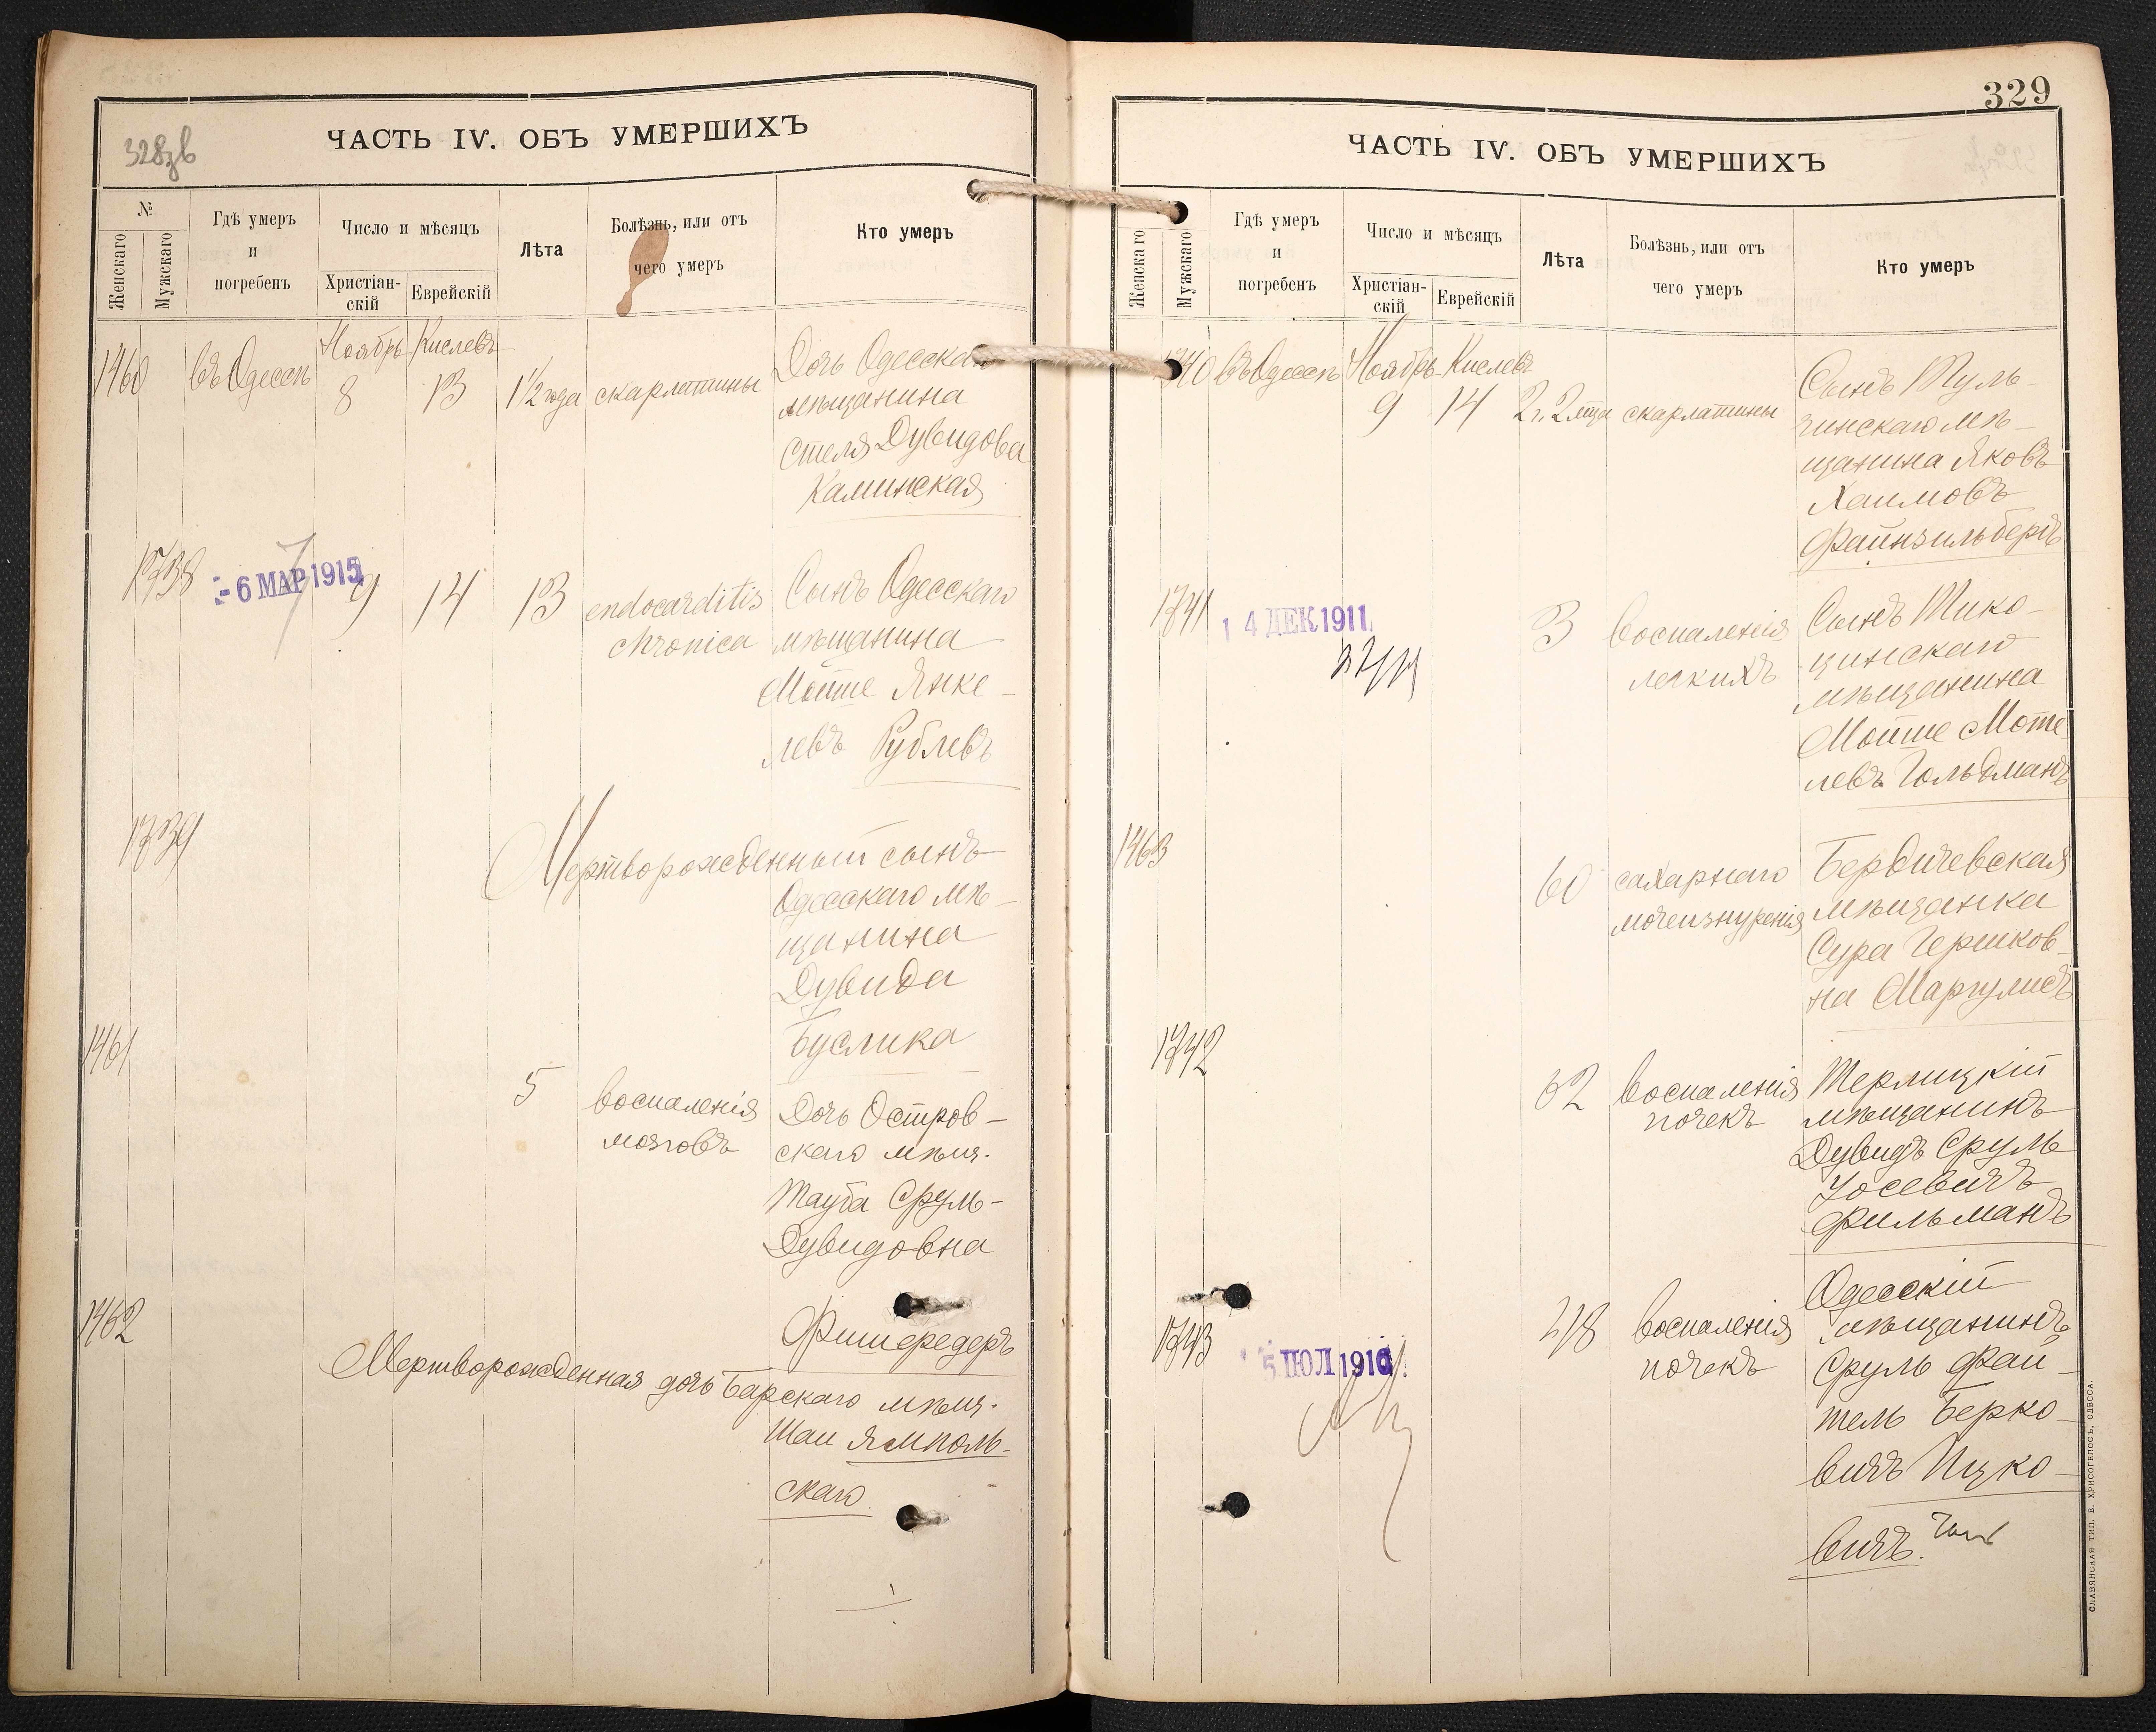 328зв
ЧАСТЬ IV. ОБЪ УМЕРШИХЪ
№
Женскаго
Мужскаго
Гдѣ умеръ
и
погребенъ
Число и мѣсяцъ
Христіан-
скій
Еврейскій
Лѣта
Болѣзнь, или отъ
чего умеръ
Кто умеръ
1460
въ Одессѣ
Ноябрь
8
Кислевъ
13
1½ года
скарлатины
Дочь Одесскаго
мѣщанина
Стеля Дувидова
Каминская
1738
- 6 МАР 1915
9
14
13
endocarditis
chronica
Сынъ Одесскаго
мѣщанина
Мойше Янке-
левъ Рублевъ
1739
Мертворожденный сынъ
Одесскаго мѣ-
щанина
Дувида
Буслика
1461
5
воспаленія
мозговъ
Дочь Остров-
скаго мѣщ.
Тауба Сруль-
Дувидовна
Фишфедеръ
1462
Мертворожденная дочь Барскаго мѣщ.
Шаи Ямполь-
скаго.
329
ЧАСТЬ IV. ОБЪ УМЕРШИХЪ
Женскаго
Мужскаго
Гдѣ умеръ
и
погребенъ
Число и мѣсяцъ
Христіан-
скій
Еврейскій
Лѣта
Болѣзнь, или отъ
чего умеръ
Кто умеръ
1740
Въ Одессѣ
Ноябрь
9
Кислевъ
14
2 г. 2 мца
скарлатины
Сынъ Туль-
чинскаго мѣ-
щанина Яковъ
Хаимовъ
Файнзильбергъ
1741
1 4 ДЕК 1911
3
воспаленія
легкихъ
Сынъ Тико-
цинскаго
мѣщанина
Мойше Моте
левъ Гольдманъ
1463
60
сахарнаго
мочеизнуренія
Бердичевская
мѣщанка
Сура Гершков-
на Маргулисъ
1742
62
воспаленія
почекъ
Терлицкій
мѣщанинъ
Дувидъ Сруль
Іосевичъ
Фильманъ
1743
5 ІЮЛ 1916
48
воспаленія
почекъ
Одесскій
мѣщанинъ
Сруль Фай-
тель Берко-
вичъ Ицко-
вичъ.
СЛАВЯНСКАЯ ТИП. Е. ХРИСОГЕЛОСЪ, ОДЕССА.